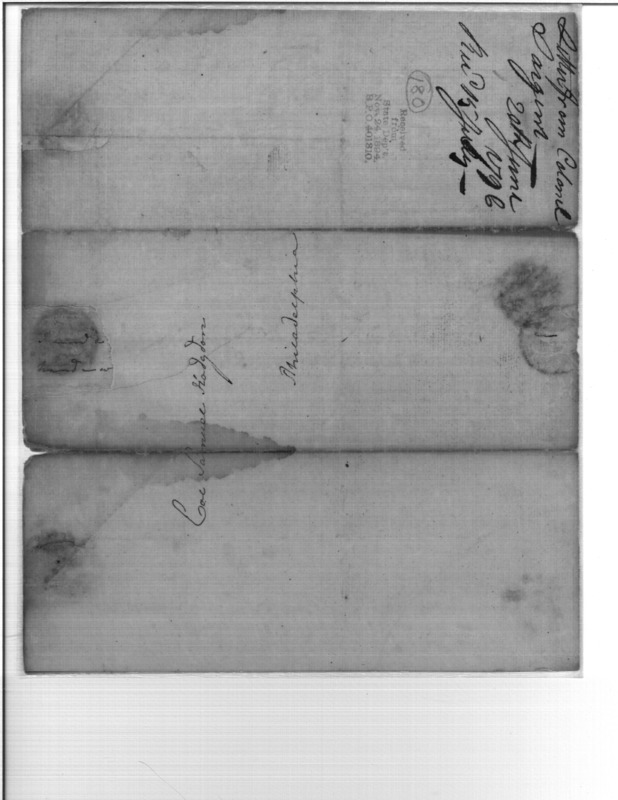 Letter from Colonel
Sargent
20th June
1796
Recd 1st July
180
Received
from
State Dep't.
Nov. 24, 1894,
R.P.O. 401810.
Col Samuel Hodgdon
Philadelphia